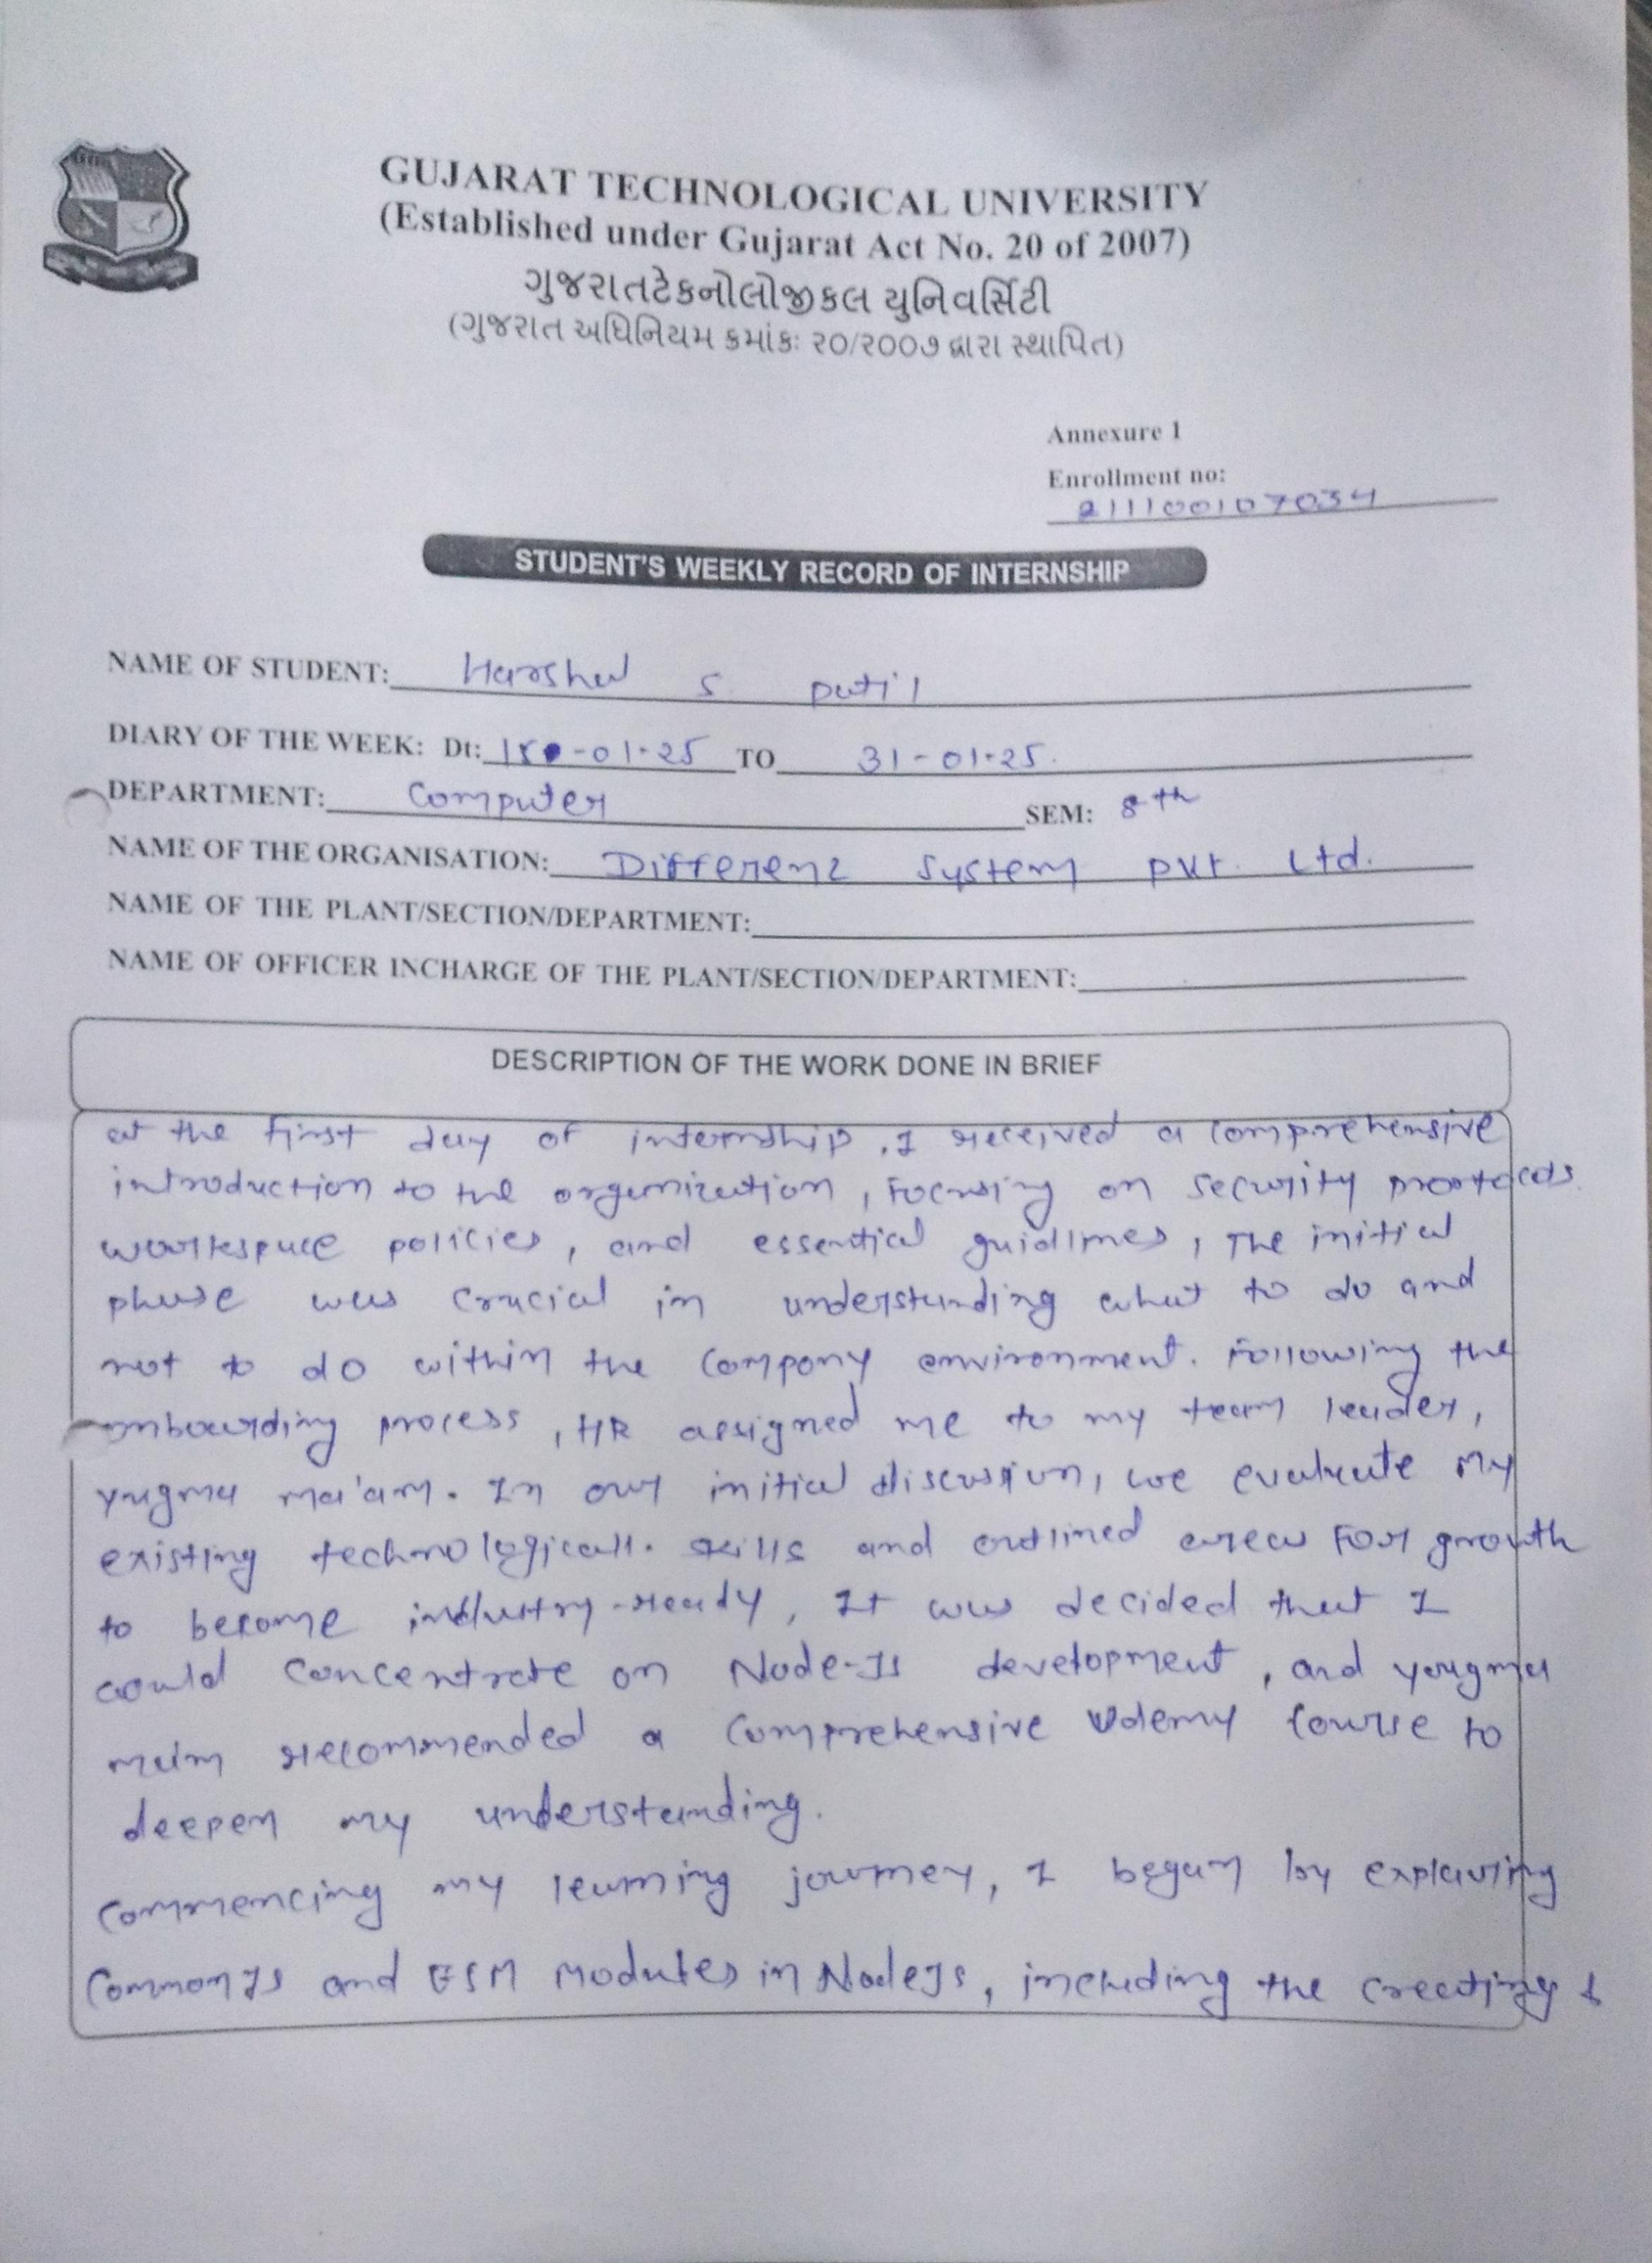 GUJARAT TECHNOLOGICAL UNIVERSITY
(Established under Gujarat Act No. 20 of 2007)
ગુજરાતટેકનોલોજીકલ યુનિવર્સિટી
(ગુજરાત અધિનિયમ ક્રમાંકઃ ૨૦/૨૦૦૭ દ્વારા સ્થાપિત)
Annexure 1
Enrollment no:
211100107034
STUDENT'S WEEKLY RECORD OF INTERNSHIP
NAME OF STUDENT: Harshal S patil
DIARY OF THE WEEK: Dt: -01-25 TO 31-01-25.
DEPARTMENT: Computer SEM: 8th
NAME OF THE ORGANISATION: Differenz System pvt. Ltd.
NAME OF THE PLANT/SECTION/DEPARTMENT:
NAME OF OFFICER INCHARGE OF THE PLANT/SECTION/DEPARTMENT:
DESCRIPTION OF THE WORK DONE IN BRIEF
at the first day of internship, I received a comprehensive
introduction to the organization, focusing on security protocols.
workspace policies, and essential guidlines, The initial
phase was crucial in understanding what to do and
not to do within the company environment. Following the
onboarding process, HR assigned me to my team leader,
yugma ma'am. In our initial discussion, we evaluate my
existing technological. skills and outlined areas for growth
to become industry-ready, It was decided that I
would concentrate on Node-Js development, and yougma
maim recommended a comprehensive Udemy course to
deepen my understanding.
commencing my learning journey, I began by exploring
CommonJs and ESM Modules in NodeJs, including the creating &